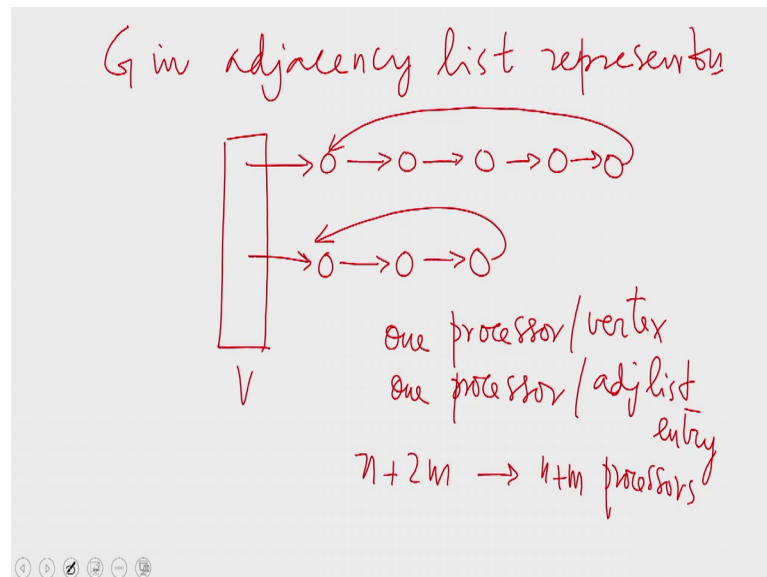 G in adjacency list representn
V
one processor/vertex
one processor/adj list
entry
n+2m → n+m processors